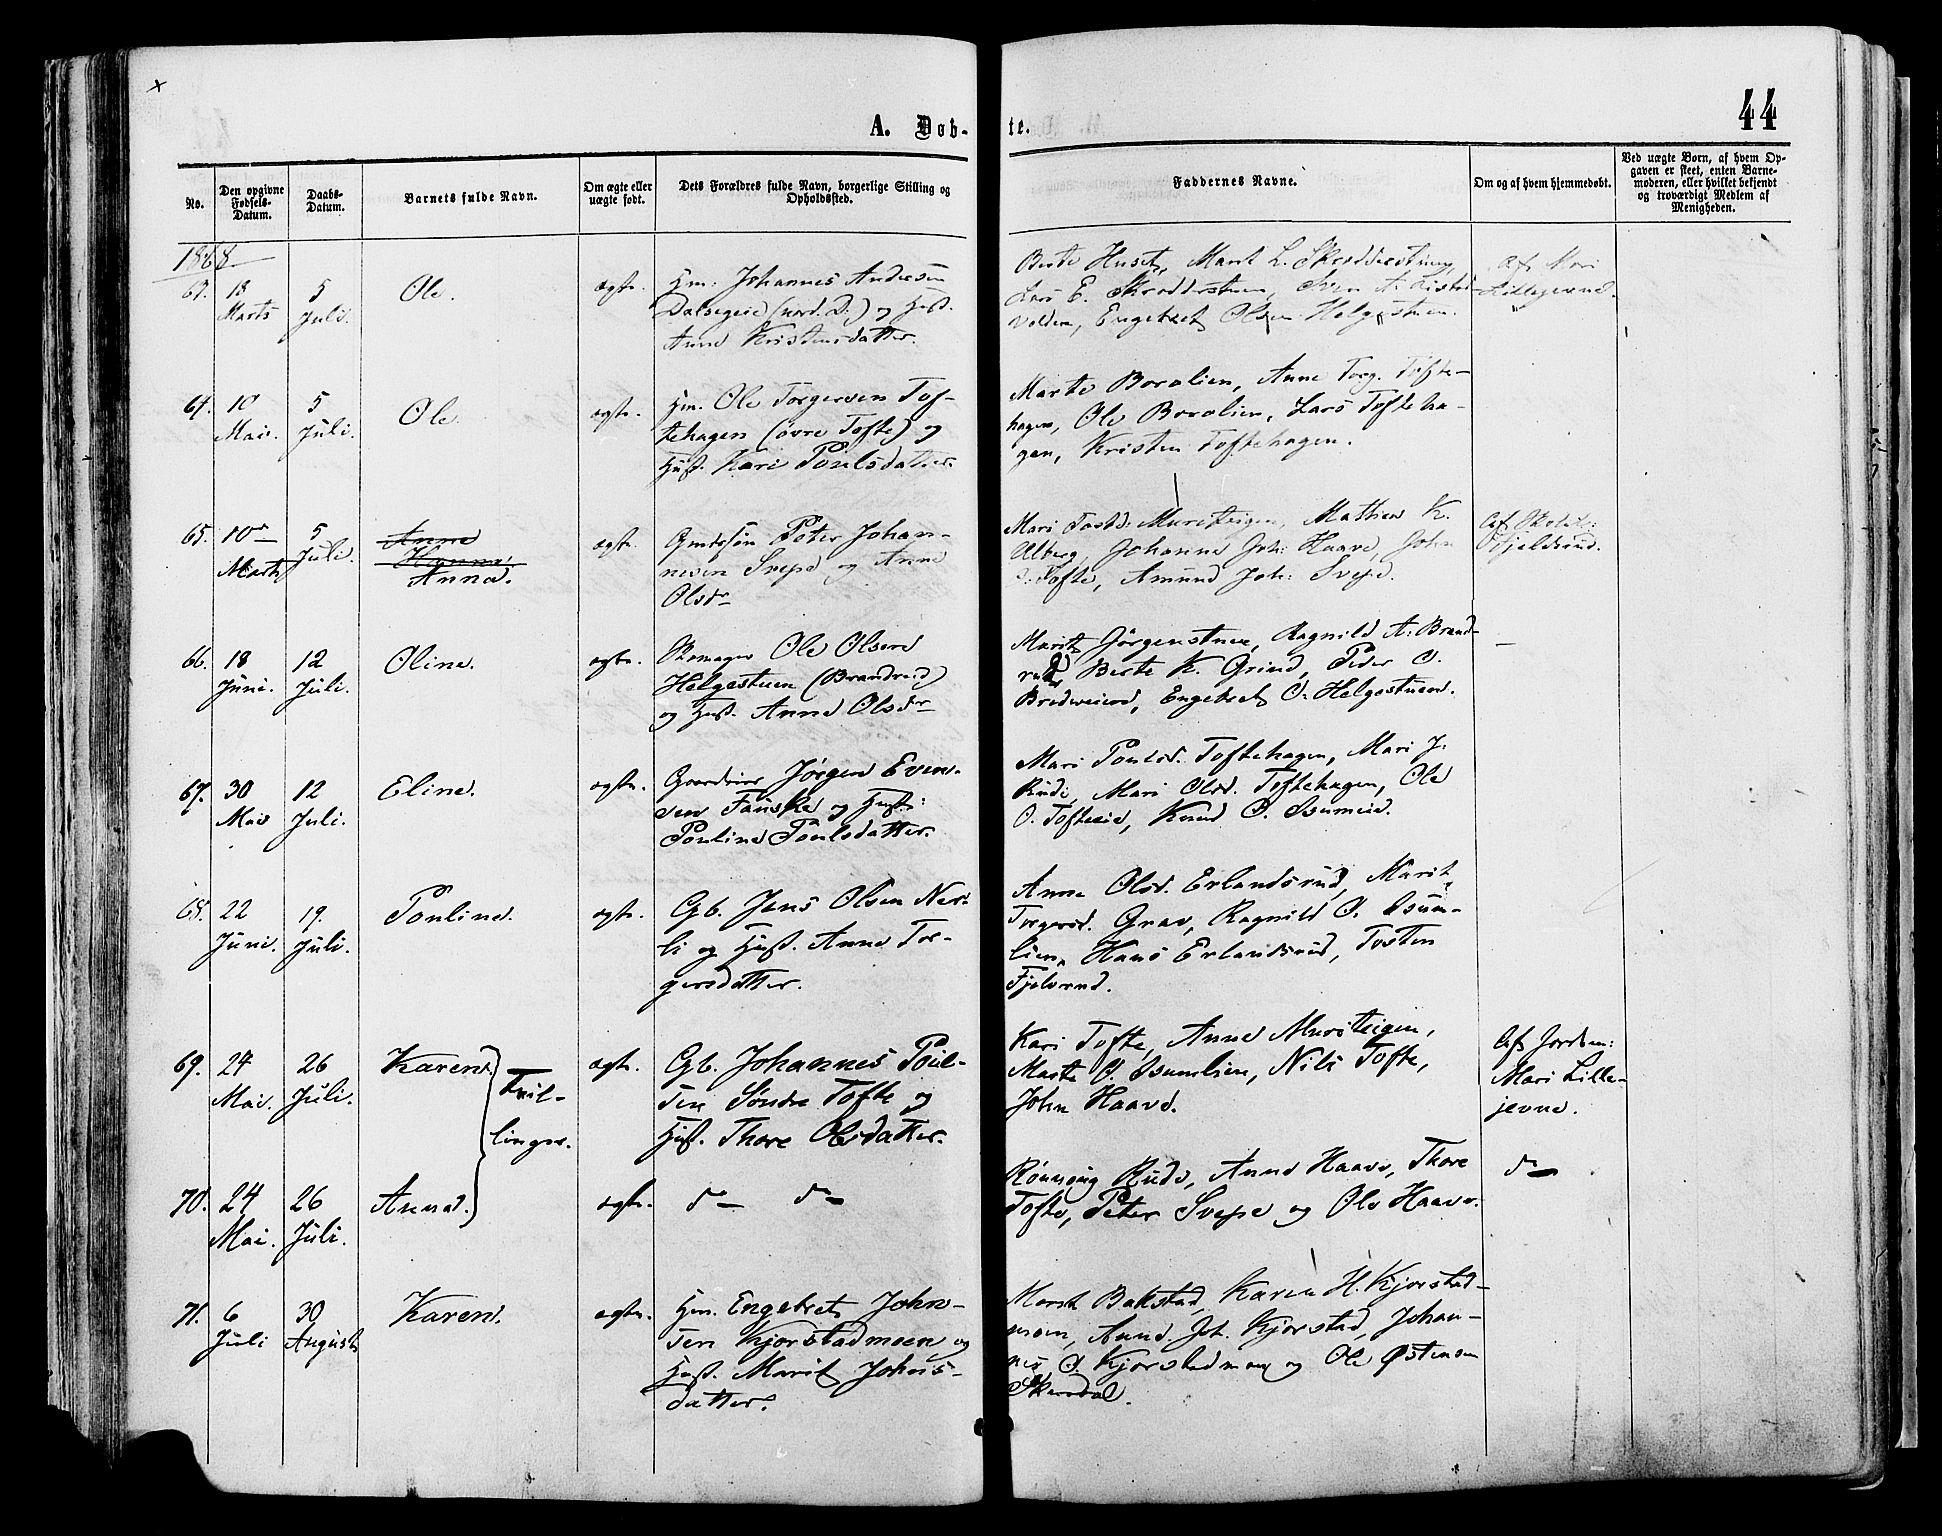 A. Døb-
te.
44
No.
Den opgivne Fødsels-Datum.
Daabs-Datum.
Barnets fulde Navn.
Om ægte eller uægte født.
Dets Forældres fulde Navn, borgerlige Stilling og Opholdssted.
Faddernes Navne.
Om og af hvem hjemmedøbt.
Ved uægte Børn, af hvem Op-
gaven er skeet, enten Barne-
moderen, eller hvilket bekjendt
og troværdigt Medlem af
Menigheden.
1868
18 Marts
5 Juli.
Ole.
ægte.
Hm. Johannes Andersen
Dalsegeie (nord. D.) og Hust.
Anne Kristensdatter.
Berte Huset, Marit L. Skrødderstuen,
Lars E. Skrødderstuen,
volden, Engebret Olsen Helgestuen.
Af Mari
Lillejevne.
64.
10 Mai.
5 Juli.
Ole.
ægte.
Hm. Ole Torgersen Tof-
tehagen (øvre Tofte) og
Hust. Kari Poulsdatter.
Marte Boralien, Anne Torg. Tofte-
hagen, Ole Boralien, Lars Tofteha-
gen, Kristen Toftehagen.
65.
10de Marts
5 Juli.
Anne
Hanna.
Anna.
ægte.
Peter Johan-
nesen Svepe og Anne
Olsdr
Mari Muristeigen, Mathias K.
Ulberg, Johanne Joh: Haave, John
Tofte, Amund Joh: Svepe.
66.
18 Juni.
12 Juli.
Oline.
ægte.
Skomager Ole Olsen
Helgestuen (Brandrud)
og Hust. Anne Olsdr
Marit Jörgenstuen, Ragnild A: Brand-
rud, Berte K. Grind, Peder O.
Engebret O. Helgestuen.
67.
30 Mai
12 Juli.
Eline.
ægte.
Gaardeier Jörgen Even-
sen Fauske og Hust:
Pouline Poulsdatter.
Mari Poulsd. Toftehagen, Mari J.
Rude, Mari Olsd. Toftehagen, Ole
O. Tofteeie, Knud O. Isumeie.
68.
22 Juni.
19. Juli.
Pouline.
ægte.
Gb. Jens Olsen Ner-
li og Hust. Anne Tor-
gersdatter.
Anne Olsd. Erlandsrud, Marit
Torgersd. Grav, Ragnild O. Isum-
lien, Hans Erlandsrud, Tosten
Fjelsrud.
69.
24 Mai.
26 Juli.
Karen.
Tvil-
linger.
ægte.
Gb. Johannes Poul-
sen Söndre Tofte og
Hust. Thore Olsdatter.
Kari Tofte, Anne Muristeigen,
Marte O. Isumlien, Nils Tofte,
John Haave.
Af Jordem:
Mari Lille-
jevne.
70.
24 Mai.
26 Juli.
Anna.
ægte.
do do
Rönnaug Rude, Anne Haave, Thore
Tofte, Peter Svepe og Ole Haave.
do
71.
6 Juli
30 August
Karen.
ægte.
Hm. Engebret John-
sen Kjorstadmoen og
Hust. Marit Johns-
datter.
Marit Bakstad, Karen H. Kjorstad-
moen, Anne Joh. Kjorstad, Johan-
nes O. Kjorstadmoen og Ole Østensen